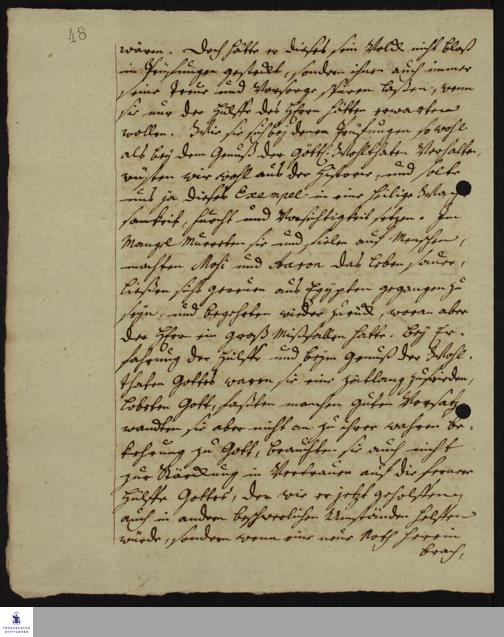 48
wären. Doch hätte er dieses sein Volck nicht bloß
in Prüfungen gestellt, sondern ihnen auch immer
seine Treue und Vorsorge spüren laßen, wenn
sie nur der Hülffe des Herrn hätten erwarten
wollen. Wie sie sich bey denen Prüfungen so wohl
als bey dem Genuß der Göttl. Wohlthaten verhalten,
wüsten wir wohl aus der Historie, und solte
uns ja dieses Exempel in eine heilige Wach-
samkeit, Furcht und Vorsichtigkeit setzen. Im
Mangel murreten sie und fielen auf Menschen,
machten Mosi und Aaron das Leben sauer,
ließen sichs gereuen aus Egypten gegangen zu
seyn, und begehrten wieder zurück, woran aber
der Herr ein groß Mißfallen hatte. Bey Er-
fahrung der Hülffe und beym Genuß der Wohl-
thaten Gottes waren sie eine zeitlang zufrieden,
lobeten Gott, faßten manchen guten Vorsatz
wandten sie aber nicht an zu ihrer wahren Be-
kehrung zu Gott, brauchten sie auch nicht
zur Stärckung im Vertrauen auf die fernere
Hülffe Gottes, der wie er jetzt geholffen,
auch in andern beschwerlichen Umständen helffen
würde, sondern wenn eine neue Noth herein
brach,
FRANCKESCHE
STIFTUNGEN